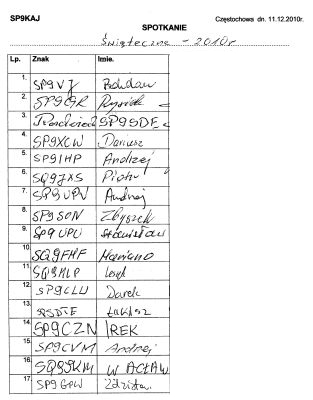 SP9KAJ Częstochowa dn. 11.12.2010r.
SPOTKANIE
Świąteczne - 2010r
Lp. Znak Imie.
1. SP9VJ Bohdan
2. SP9GR Rysiek
3. SP9SDF
4. SP9XCW Dariusz
5. SP9IHP Andrzej
6. SQ9JXS Piotr
7. SP9UPV Andrzej
8. SP9SON Zbyszek
9. SP9UPU Stanisław
10. SQ9FHF Mariano
11. SQ9HLP
12. SP9CLU Darek
13. Łukasz
14. SP9CZN IREK
15. SP9CVM Andrzej
16. SQ9SKM WACŁAW
17. SP9GPW Zdzisław